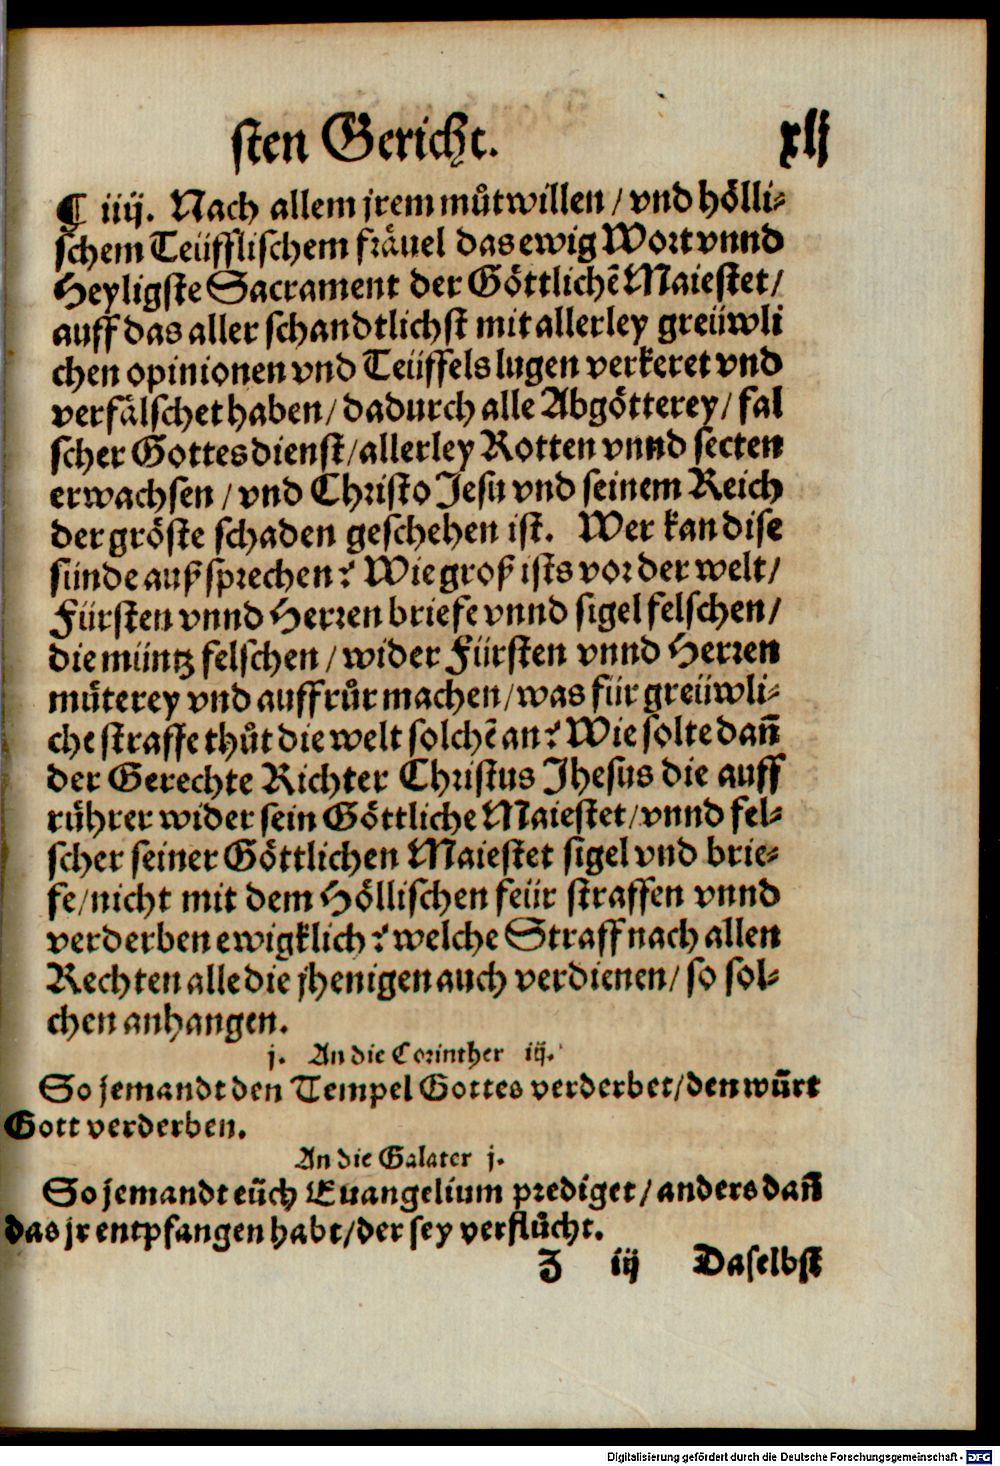 sten Gericht. xlj
¶ iiij. Nach allem jrem můtwillen / vnd hölli-
schem Teüfflischem fräuel das ewig Wort vnnd
Heyligste Sacrament der Göttlichẽ Maiestet /
auff das aller schandtlichst mit allerley greüwli
chen opinionen vnd Teüffels lugen verkeret vnd
verfälschet haben / dadurch alle Abgötterey / fal
scher Gottesdienst / allerley Rotten vnnd secten
erwachsen / vnd Christo Jesu vnd seinem Reich
der gröste schaden geschehen ist. Wer kan dise
sünde außsprechen? Wie groß ists vor der welt /
Fürsten vnnd Herren briefe vnnd sigel felschen /
die müntz felschen / wider Fürsten vnnd Herren
můterey vnd auffrůr machen / was für greüwli-
che straffe thůt die welt solchẽ an? Wie solte dañ
der Gerechte Richter Christus Jhesus die auff
rührer wider sein Göttliche Maiestet / vnnd fel-
scher seiner Göttlichen Maiestet sigel vnd brie-
fe / nicht mit dem Höllischen feür straffen vnnd
verderben ewigklich? welche Straff nach allen
Rechten alle die jhenigen auch verdienen / so sol-
chen anhangen.
j. An die Corinther iij.
So jemandt den Tempel Gottes verderbet / den würt
Gott verderben.
An die Galater j.
So jemandt eüch Euangelium prediget / anders dañ
das jr entpfangen habt / der sey verflůcht.
Z iij Daselbst
Digitalisierung gefördert durch die Deutsche Forschungsgemeinschaft - DFG